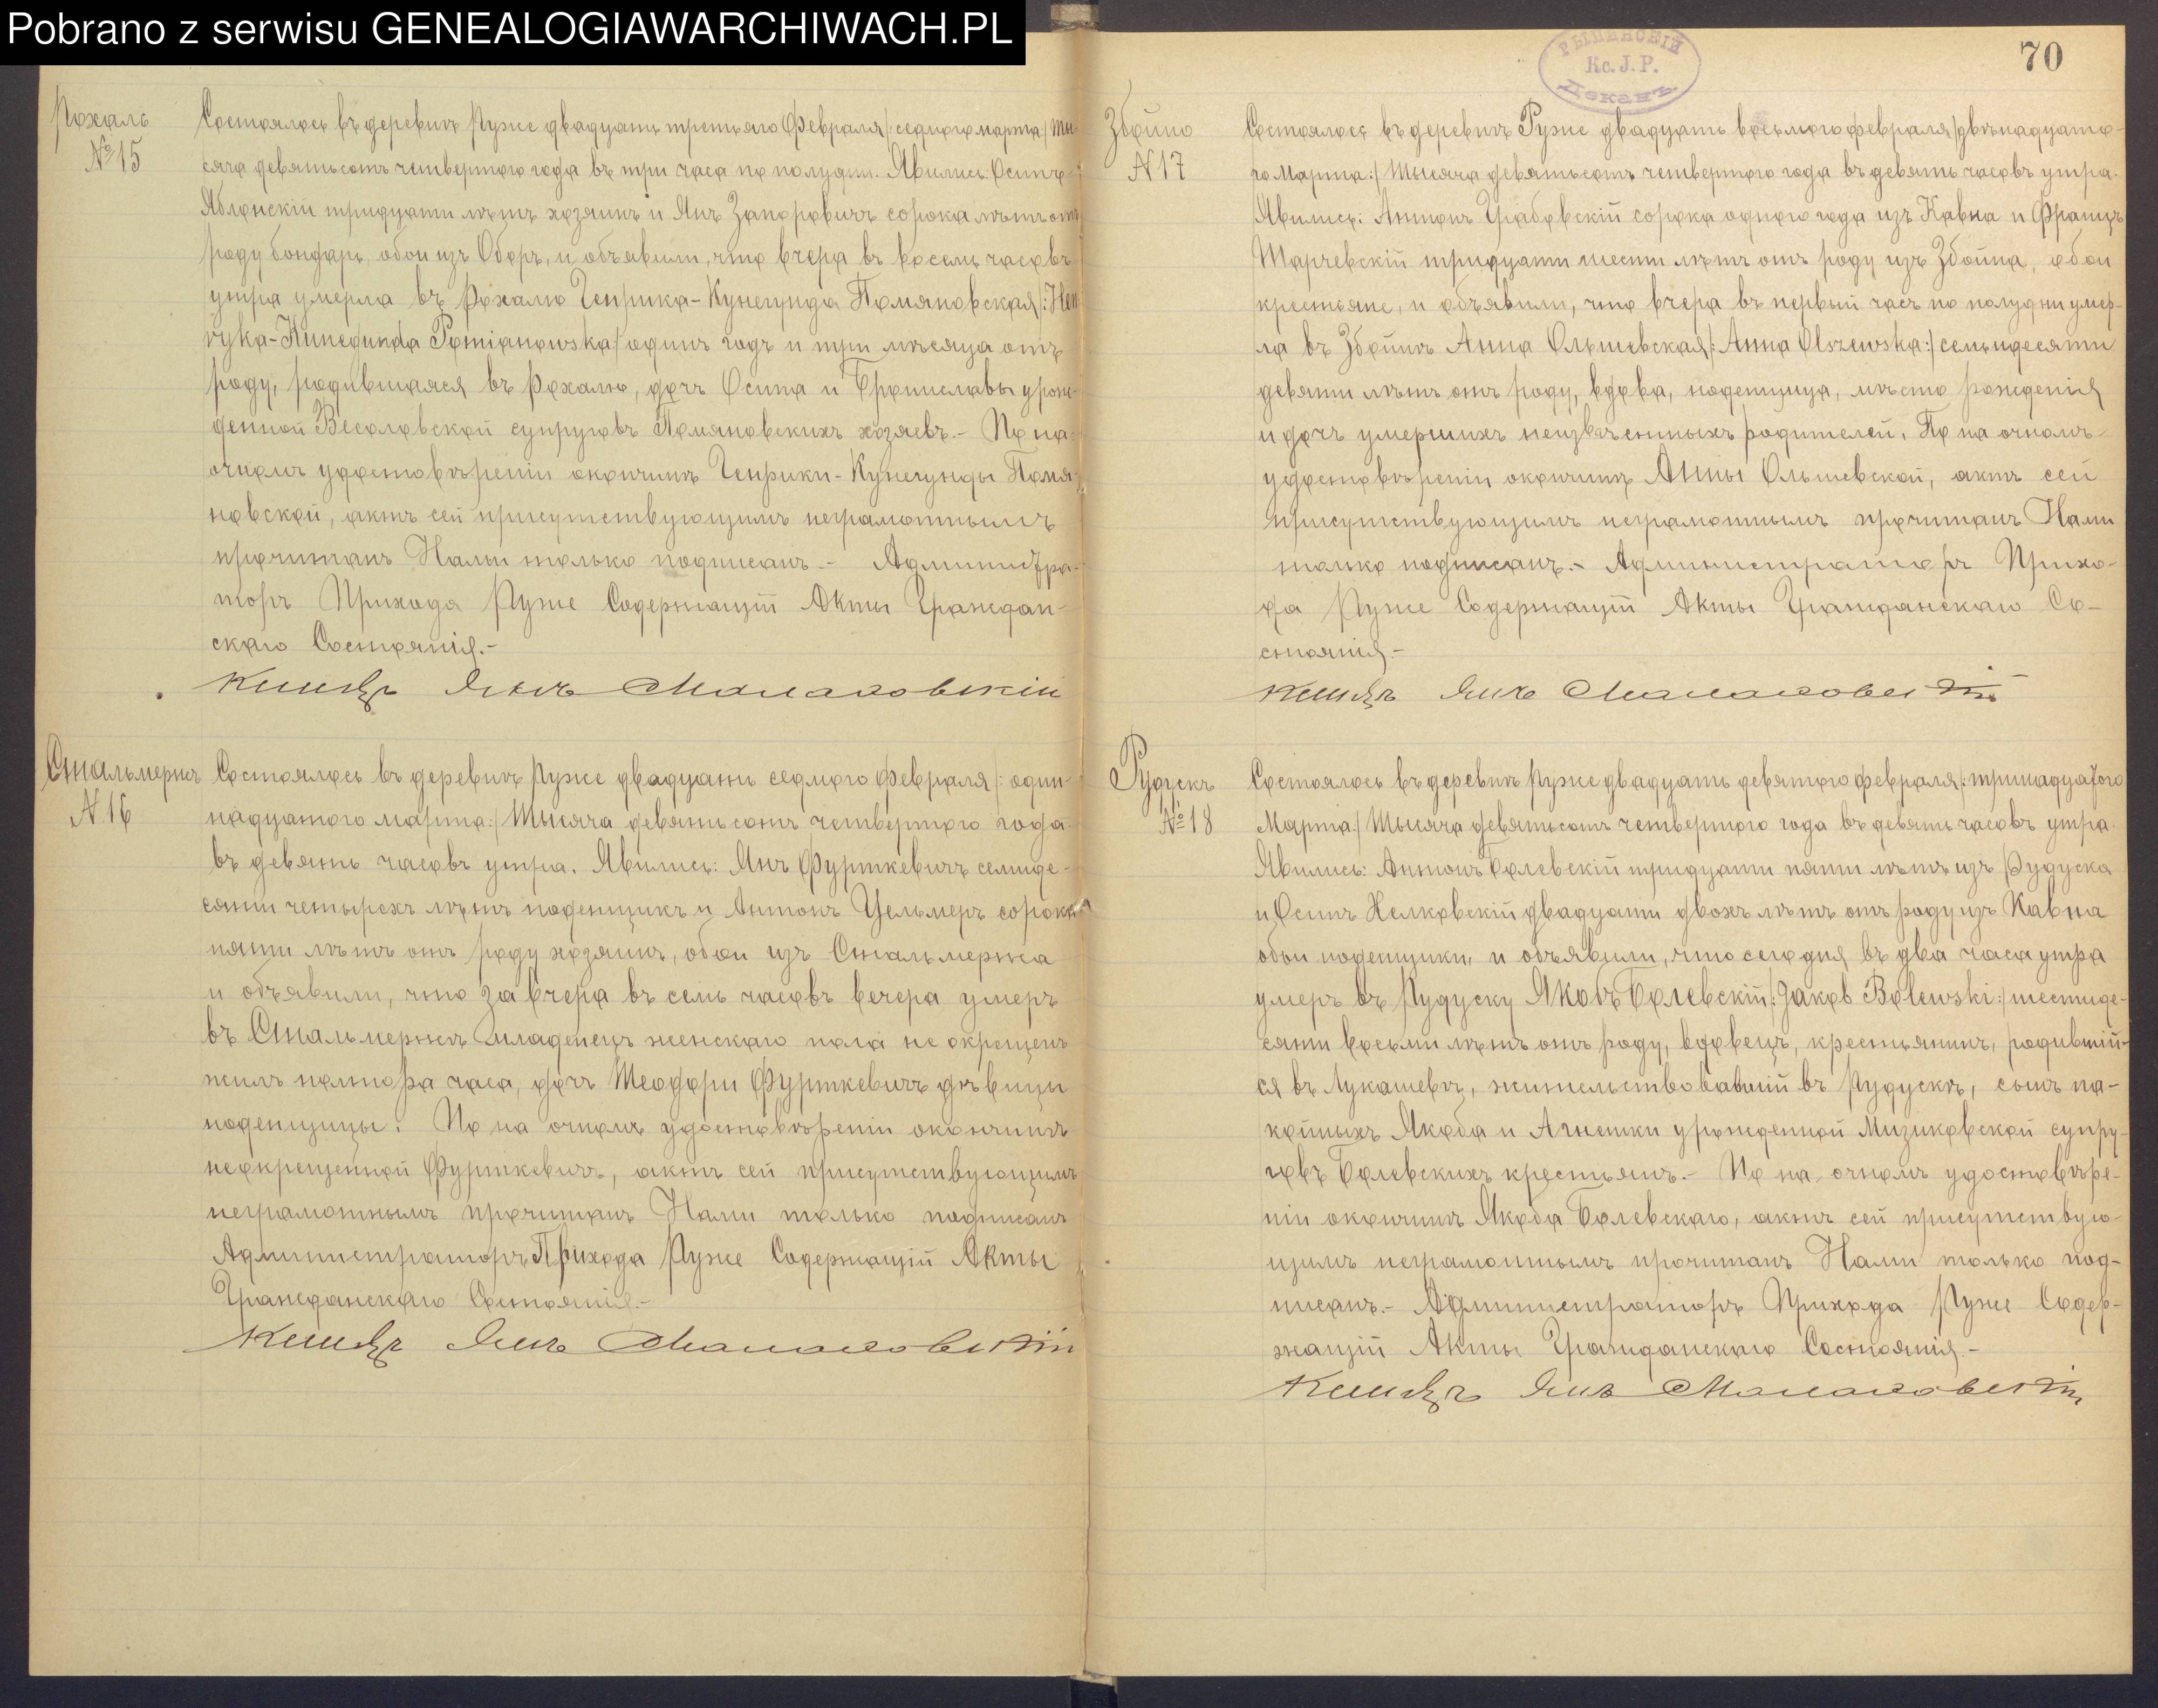 Pobrano z serwisu GENEALOGIAWARCHIWACH.PL
Рохаль
№ 15
Состоялось въ деревнѣ Руже двадцать третьяго Февраля /: седмого марта :/ Ты-
сяча девятьсотъ четвертого года въ три часа по полудни. Явились: Осипъ
Яблонскій тридцати лѣтъ хозяинъ и Янъ Запоровичъ сорока лѣтъ отъ
роду бондарь, обои изъ Оборъ, и объявили, что вчера въ восемь часовъ
утра умерла въ Рохалю Генрика-Кунегунда Помяновская /: Hen
ryka-Kunegunda Pomianowska :/ одинъ годъ и три мѣсяца отъ
роду, родившаяся въ Рохалю, дочь Осипа и Брониславы урож-
денной Весоловской супруговъ Помяновскихъ хозяевъ.- По на
очномъ удостовѣреніи окончинѣ Генрики-Кунегунды Помя-
новской, актъ сей присутствующимъ неграмотнымъ
прочитанъ Нами только подписанъ.- Администра-
торъ Прихода Руже Содержащій Акты Граждан-
скаго Состоянія.-
Ксендзъ Янъ Малаховскій
Стальмержъ
N 16
Состоялось въ деревнѣ Руже двадцать седмого Февраля /: один-
надцатого марта :/ Тысяча девятьсотъ четвертого года
въ девять часовъ утра. Явились: Янъ Фурткевичъ семиде-
сяти четырехъ лѣтъ поденщикъ и Антонъ Цельмеръ сорока
пяти лѣтъ отъ роду хозяинъ, обои изъ Стальмержа
и объявили, что за вчера въ семь часовъ вечера умеръ
въ Стальмержѣ младенецъ женскаго пола не окрещенъ
жилъ полтора часа, дочь Теодоры Фурткевичъ дѣвицы
поденщицы. По на очномъ удостовѣреніи окончинѣ
неокрещенной Фурткевичъ, актъ сей присутствующимъ
неграмотнымъ прочитанъ Нами только подписанъ
Администраторъ Прихода Руже Содержащій Акты
Гражданскаго Состоянія.-
Ксендзъ Янъ Малаховскій
70
РЫПИНСКІЙ
Кс. J. P.
Деканъ
Збойно
N 17
Состоялось въ деревнѣ Руже двадцать восьмого февраля /: двѣнадцато-
го Марта :/ Тысяча девятьсотъ четвертого года въ девять часовъ утра.
Явились: Антонъ Грабовскій сорока одного года изъ Кавна и Францъ
Марчевскій тридцати шести лѣтъ отъ роду изъ Збойна, обои
крестьяне, и объявили, что вчера въ первый часъ по полудни умер-
ла въ Збойнѣ Анна Ольшевская /: Anna Olszewska :/ семидесяти
девяти лѣтъ отъ роду, вдова, поденщица, мѣсто рожденія
и дочь умершихъ неизвѣченныхъ родителей. По на очномъ
удостовѣреніи окончинѣ Анны Ольшевской, актъ сей
присутствующимъ неграмотнымъ прочитанъ Нами
только подписанъ.- Администраторъ Прихо-
да Руже Содержащій Акты Гражданскаго Со-
стоянія.-
Ксендзъ Янъ Малаховскій
Рудускъ
№ 18
Состоялось въ деревнѣ Руже двадцать девятого февраля /: тринадцатого
Марта :/ Тысяча девятьсотъ четвертого года въ девять часовъ утра.
Явились: Антонъ Болевскій тридцати пяти лѣтъ изъ Рудуска
и Осипъ Желковскій двадцати двохъ лѣтъ отъ роду изъ Кавна
обои поденщики, и объявили, что сегодня въ два часа утра
умеръ въ Рудуску Яковъ Болевскій /: Jakób Bolewski :/ шестиде-
сяти восьми лѣтъ отъ роду, вдовецъ, крестьянинъ, родивший-
ся въ Лукашевѣ, жительствовавшій въ Рудускѣ, сынъ по-
койныхъ Якоба и Агнешки урожденной Мизиковской супру-
говъ Болевскихъ крестьянъ.- По на очномъ удостовѣре-
ніи окончинѣ Якоба Болевскаго, актъ сей присутствую-
щимъ неграмотнымъ прочитанъ Нами только под-
писанъ.- Администраторъ Прихода Руже Содер-
жащій Акты Гражданскаго Состоянія.-
Ксендзъ Янъ Малаховскій